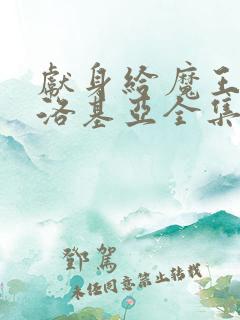 獻身給魔王
洛基亞全集
鄧駕
未經同意禁止轉載